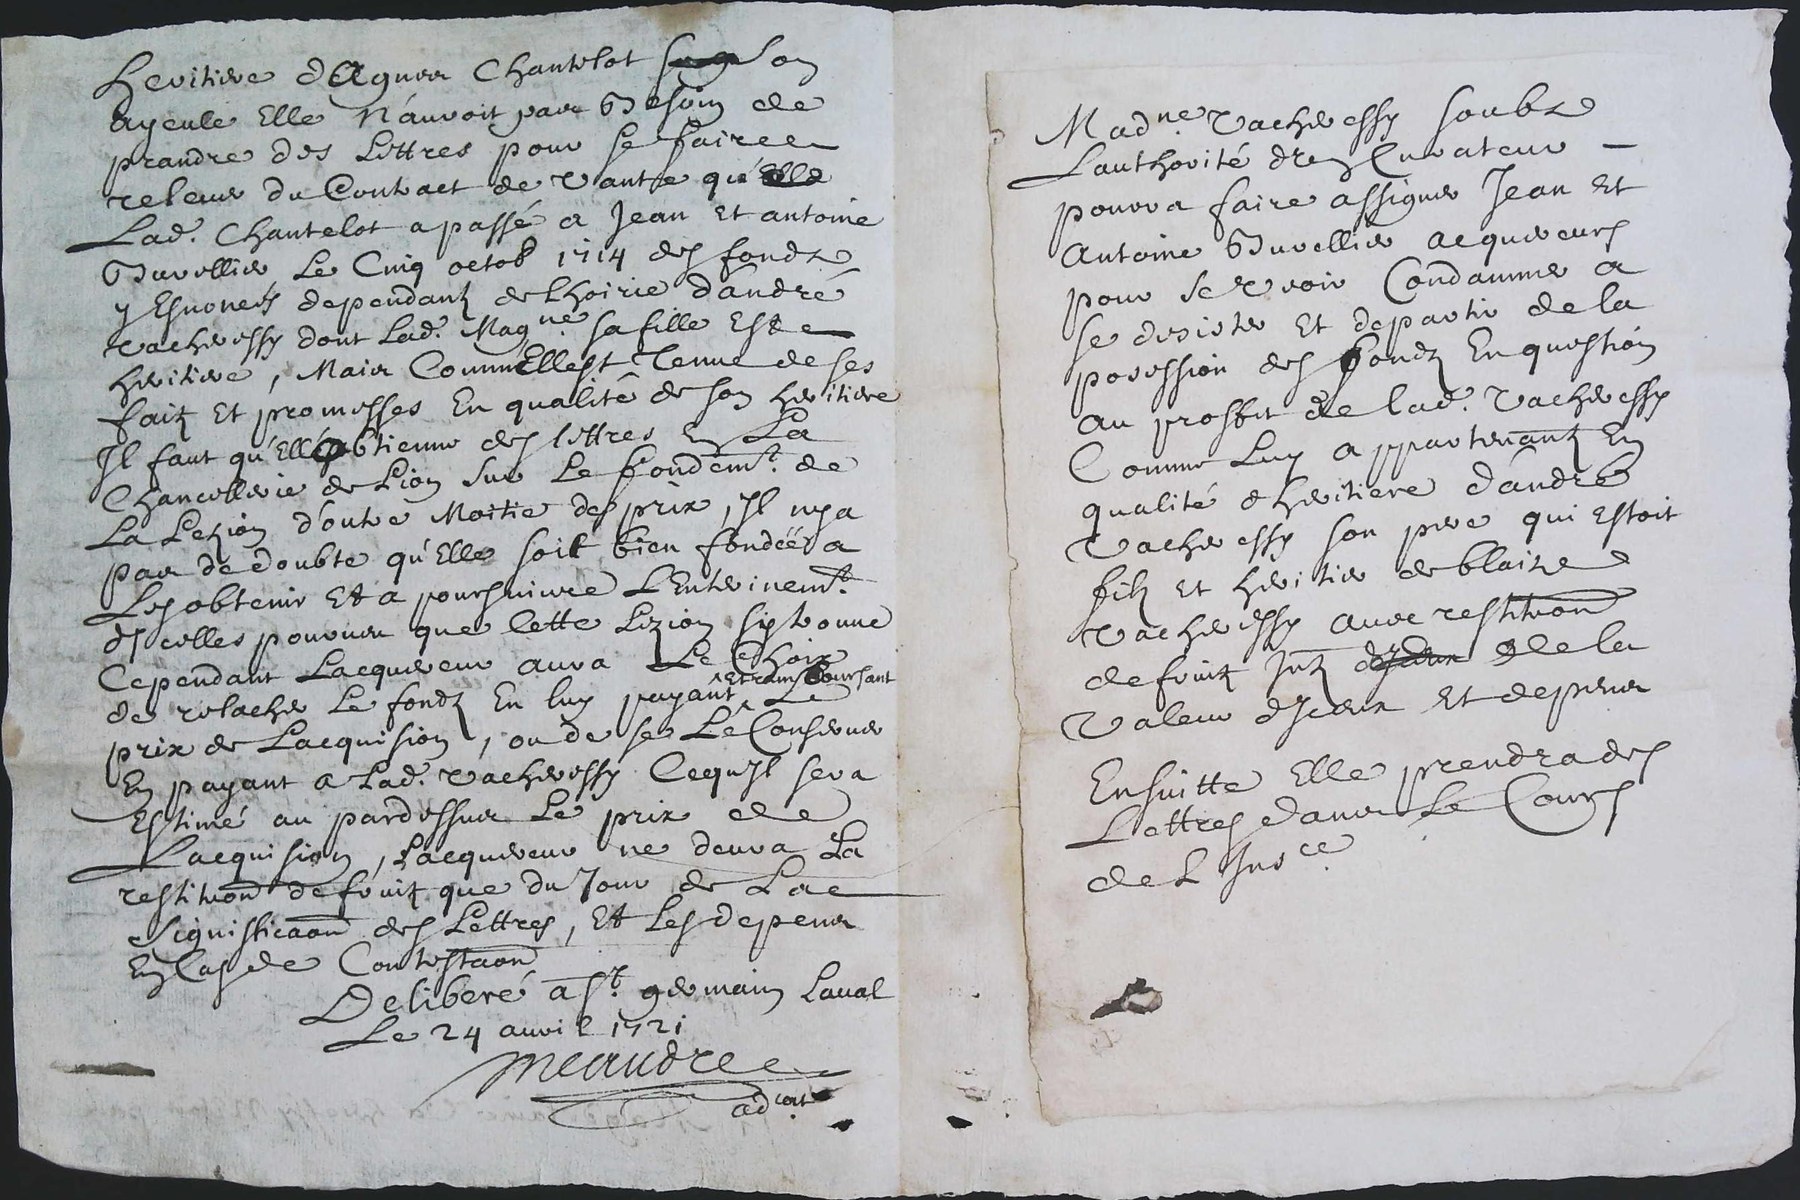 heritiere d'Agnes Chantelot son
ayeule Elle N'auroit pas Besoin de
prandre des Lettres pour se faire
relever du Contract de vante qu'Elle
Lad. Chantelot a passé a Jean Et antoine
Burellier Le Cinq octob 1714 des fonds
y Esnoncés dependant de Lhoirie d'andré
vacheressy dont Lad. Mag.ne sa fille Est
heritiere, Mais Comm'Ellest Tenue de ses
faitz Et promesses En qualité de son heritiere
Jl faut qu'Elle obtienne des lettres En La
Chancellerie de Lion Sur Le fondem.t de
La Lezion d'outre Moitie de prix, Jl ny a
pas de doubte qu'Elle soit bien fondée a
Les obtenir Et a poursuivre L'Enterinem.t
d'Jcelles pourveu que cette Lezion sy trouve
Cependant Lacquereur aura Le Choix
de relacher Le fondz En luy payant Et remboursant Le
prix de Lacquision, ou de se Le Conserver
En payant a Lad. vacheressy Cequ'Jl sera
Estimé au pardessus Le prix de
Lacquision, Lacquereur ne devra La
restitu͞on de fruitz que du Jour de La
significa͞on des Lettres, Et Les depens
En Cas de Contesta͞on
Deliberé a St. germain Laval
Le 24 avril 1721
Meaudre
ad.cat
Mad.ne vacheressy soubz
L'authorité de son Curateur
pourra faire assigner Jean Et
Antoine Burellier acquereurs
pour se voir Condamner a
se desister Et departir de la
posession des fondz En question
au proffit de lad. vacheressy
Comme Luy appartenantz En
qualité d'heritiere d'andré
vacheressy son pere qui Estoit
filz Et heritier de blaize
vacheressy avec restitu͞on
de fruitz de la
valeur d'Jceux Et depens
Ensuitte Elle prendra des
Lettres dans Le Cours
de L'Ins.ce